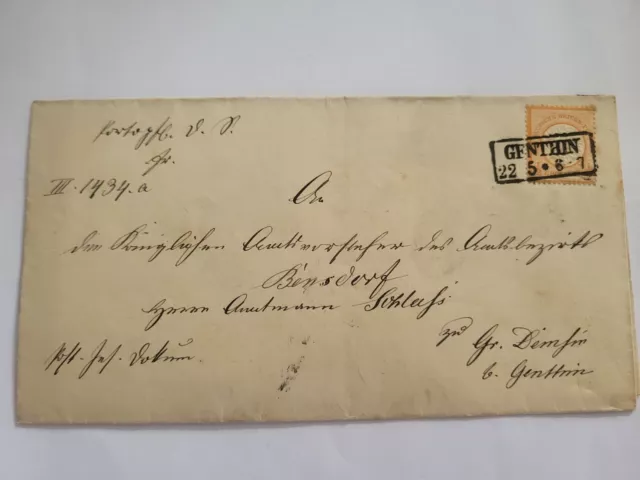 portopfl. D. S.
fr.
III. 1434. a
GENTHIN
22 5 • 6-7
An
den Königlichen Amtsvorsteher des Amtsbezirks
Bensdorf
Herrn Amtmann Schlass
zu
Gr. Demsin
b. Genthin